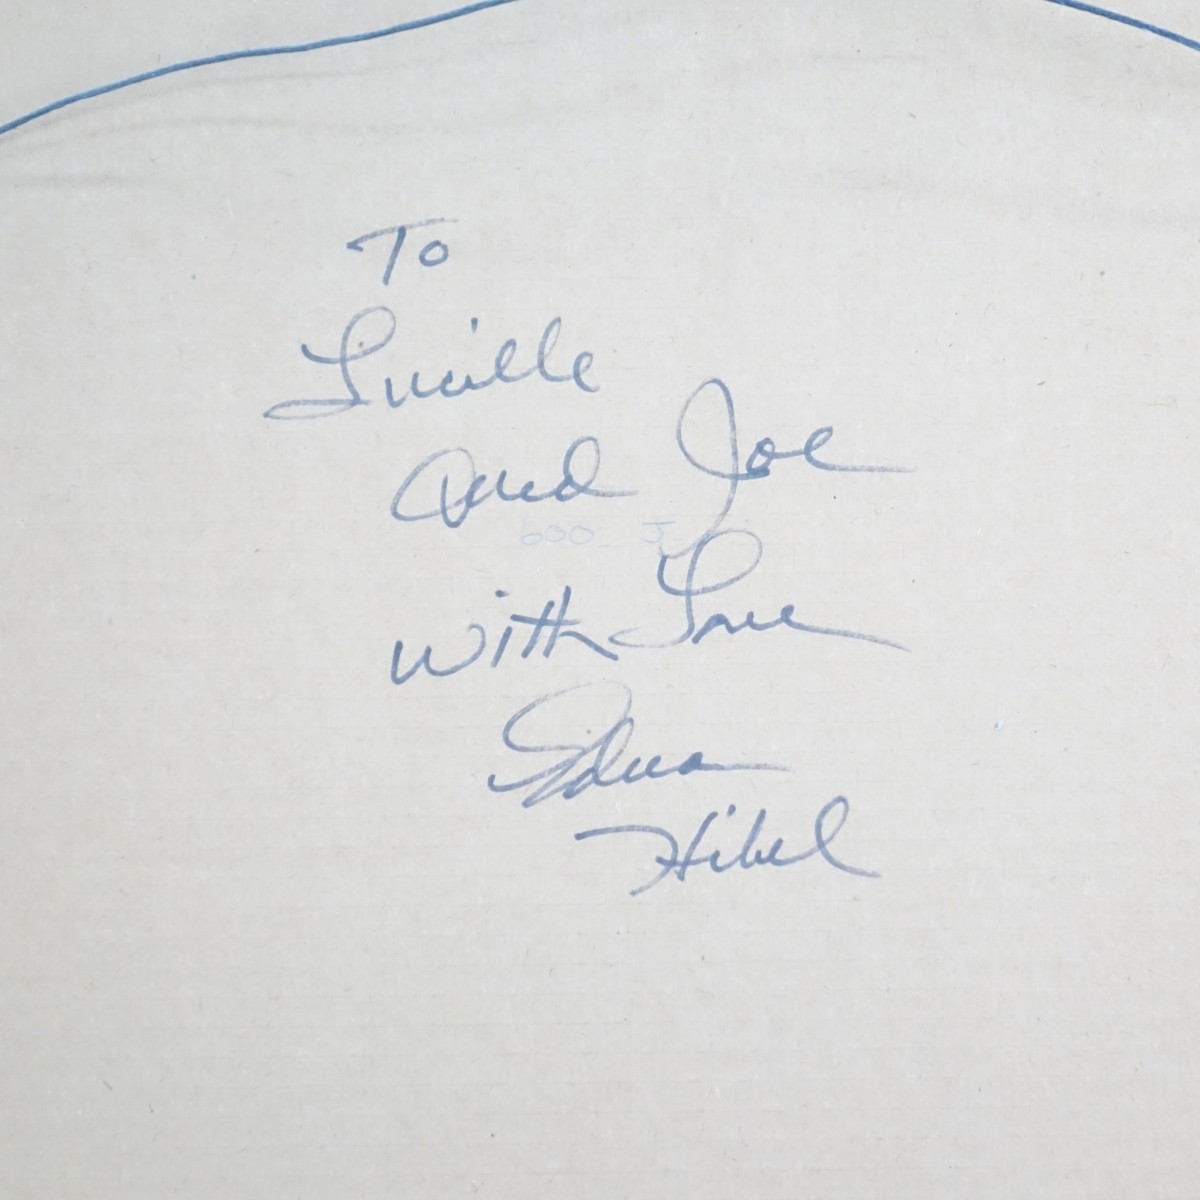 To
Lucille
and Joe
600 J
with Love
Edna
Hibel